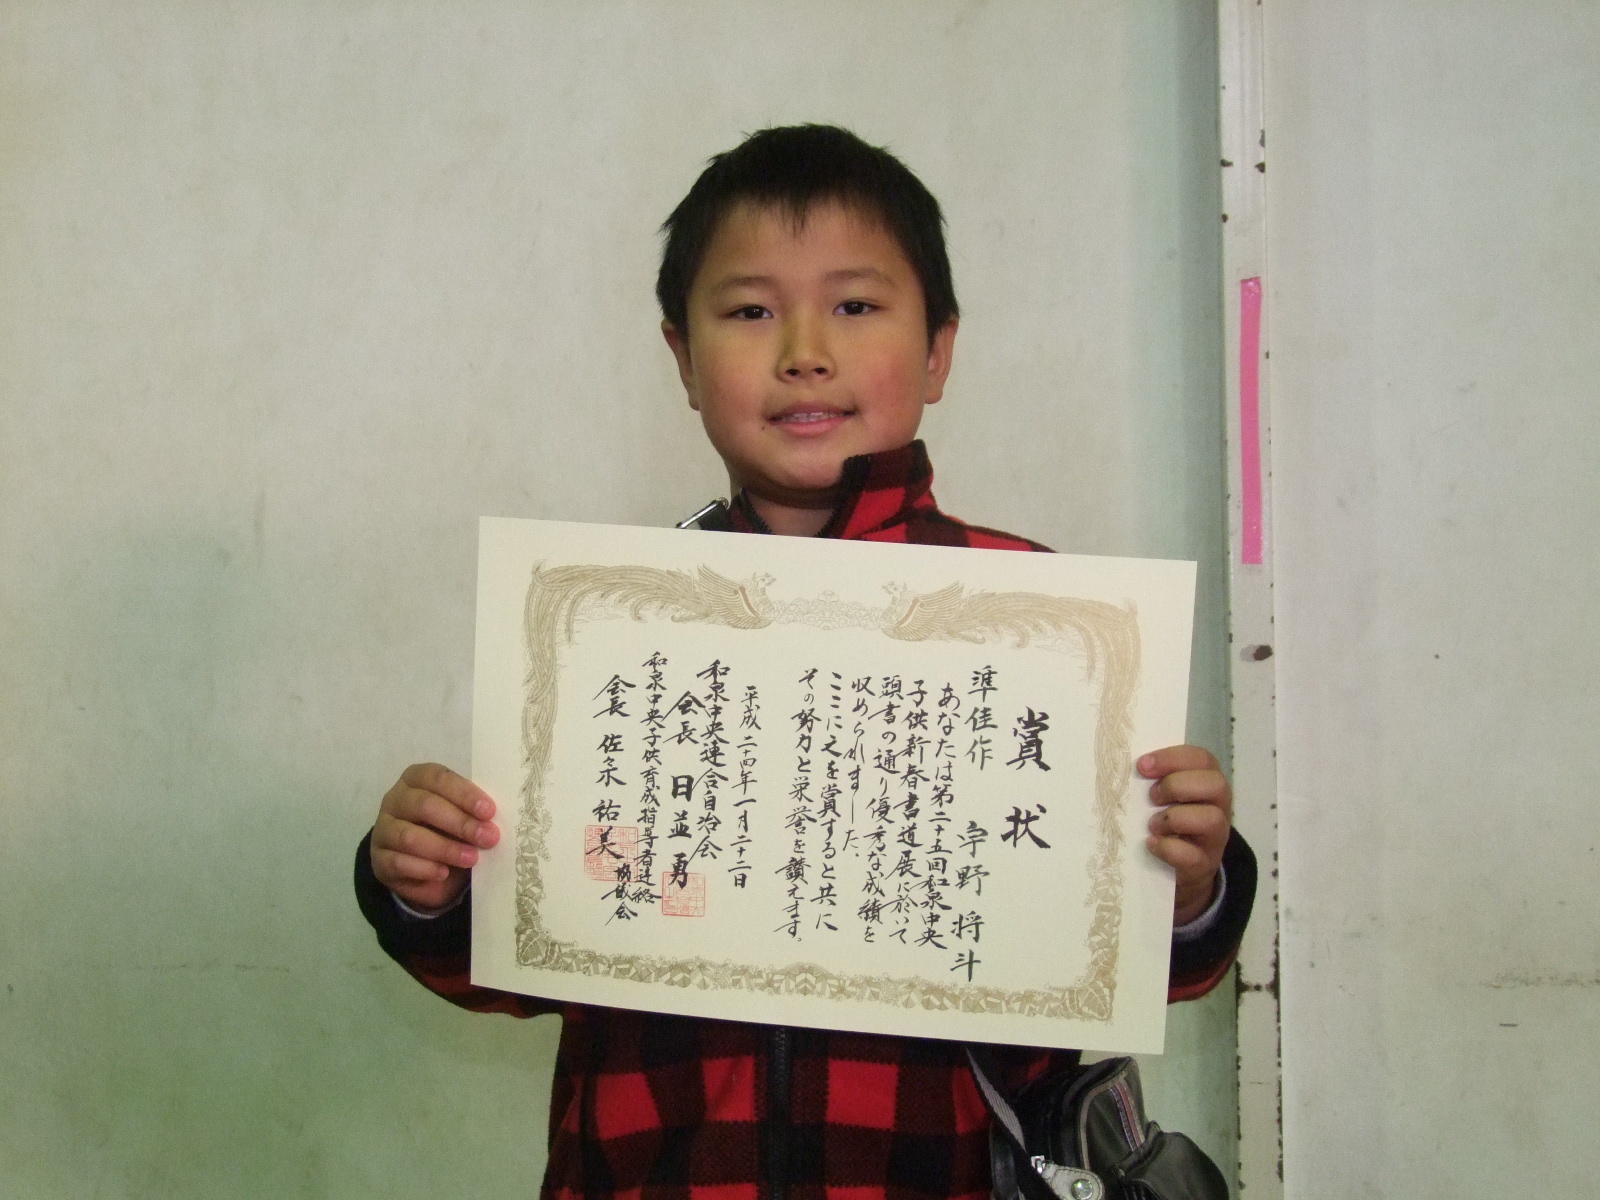 賞状
準佳作 宇野将斗
あなたは第二十五回和泉中央
子供新春書道展に於いて
頭書の通り優秀な成績を
収められました、
ここに之を賞すると共に
その努力と栄誉を讃えます。
平成二十四年一月二十二日
和泉中央連合自治会
会長 日並 勇
和泉中央子供育成指導者連絡
協議会
会長 佐々木 祐美